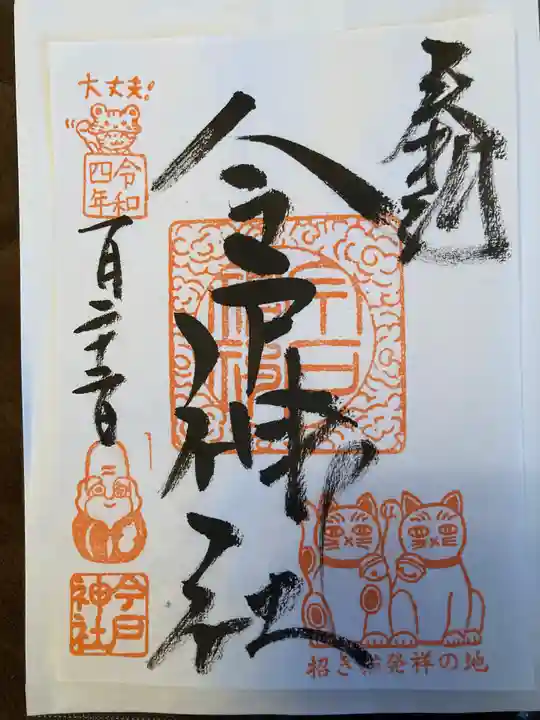 奉拝
今戸神社
大丈夫!
令和
四年
一月二十二日
今戸
神社
今戸
神社
招き猫発祥の地